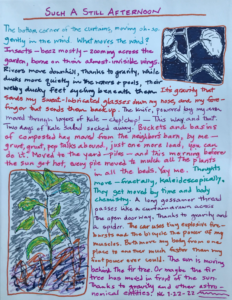 SUCH A STILL AFTERNOON
The bottom corner of the curtains, moving
gently in the wind. What moves the wind?
Insects—bees mostly—zooming across the
garden, borne on their almost-invisible wings.
Rivers move downhill, thanks to gravity, while
ducks move quickly in the rivers & ponds, their
webby ducky feet cycling beneath them. It's gravity that
makes my sweat-lubricated glasses down my nose, and my fore-
finger that sends them back up. The knife, powered by my arm,
moved through layers of kale—chop! chop!— This way and that.
Two bags of kale
of composted hay moved from the neighbor's barn, by me—
grunt, grunt, pop talks ahoud, just one more load, you can
do it. Moved to the yard-piles—and this morning before
the sun got hot, every pile moved to mulch all the plants
in all the beds. Yay me. Thoughts
move—frantically, kaleidoscopically.
They get moved by time and body
chemistry. A long gossamer thread
passes like a
the open doorway. Thanks to gravity and
a spider. The car uses tiny explosions for
bursts and the bicycle the power of my
muscles. Both move my body from one
place to another much faster than my
foot power ever could. The sun is moving
behind the fir tree. Or maybe the fir
tree has moved in front of the sun.
Thanks to gravity and other astro-
nomical entities!